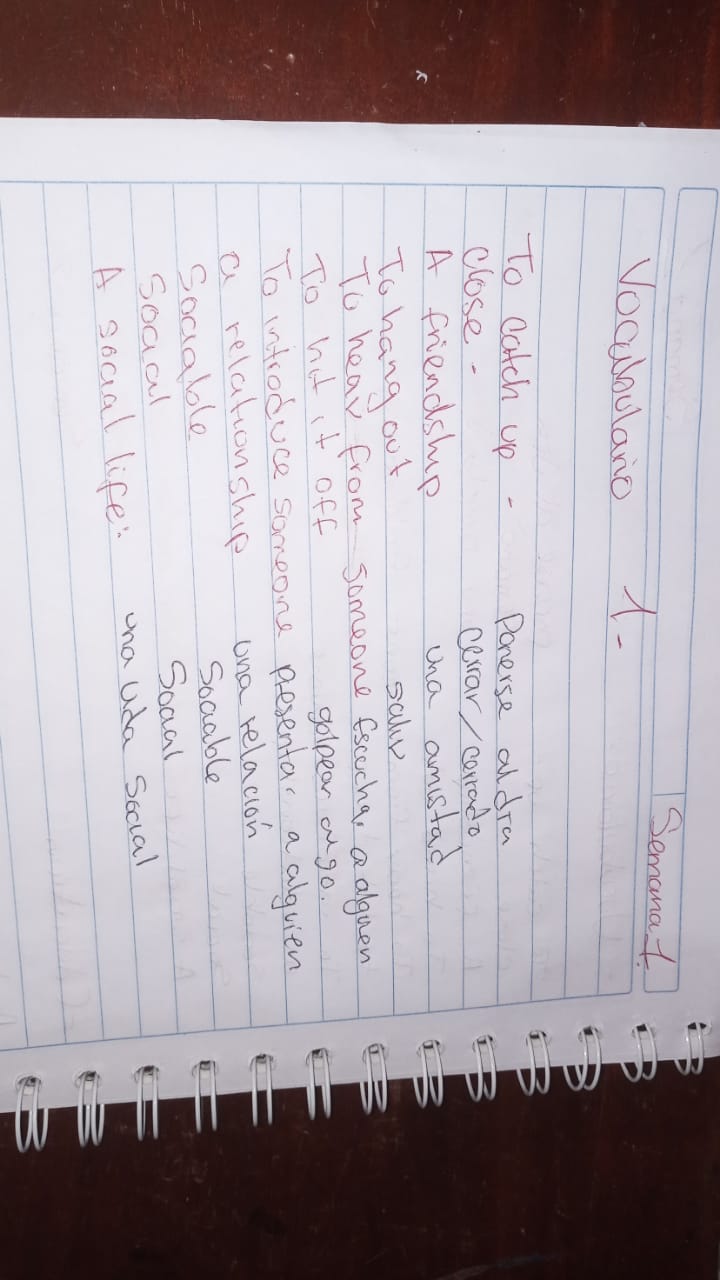 Semana 1.
Vocabulario 1-
To catch up - Ponerse al dia
Close - cerrar/cerrado
A friendship una amistad
To hang out salir
To hear from someone Escuchar a alguien
To hit it off golpear algo.
To introduce someone presentar a alguien
a relationship una relación
Sociable Sociable
Social Social
A social life: una vida social